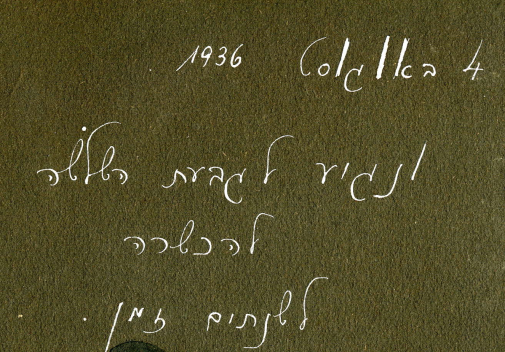 4 באוגוסט 1936
ונגיע לגבעת השלשה
להכשרה
לשנתים זמן.